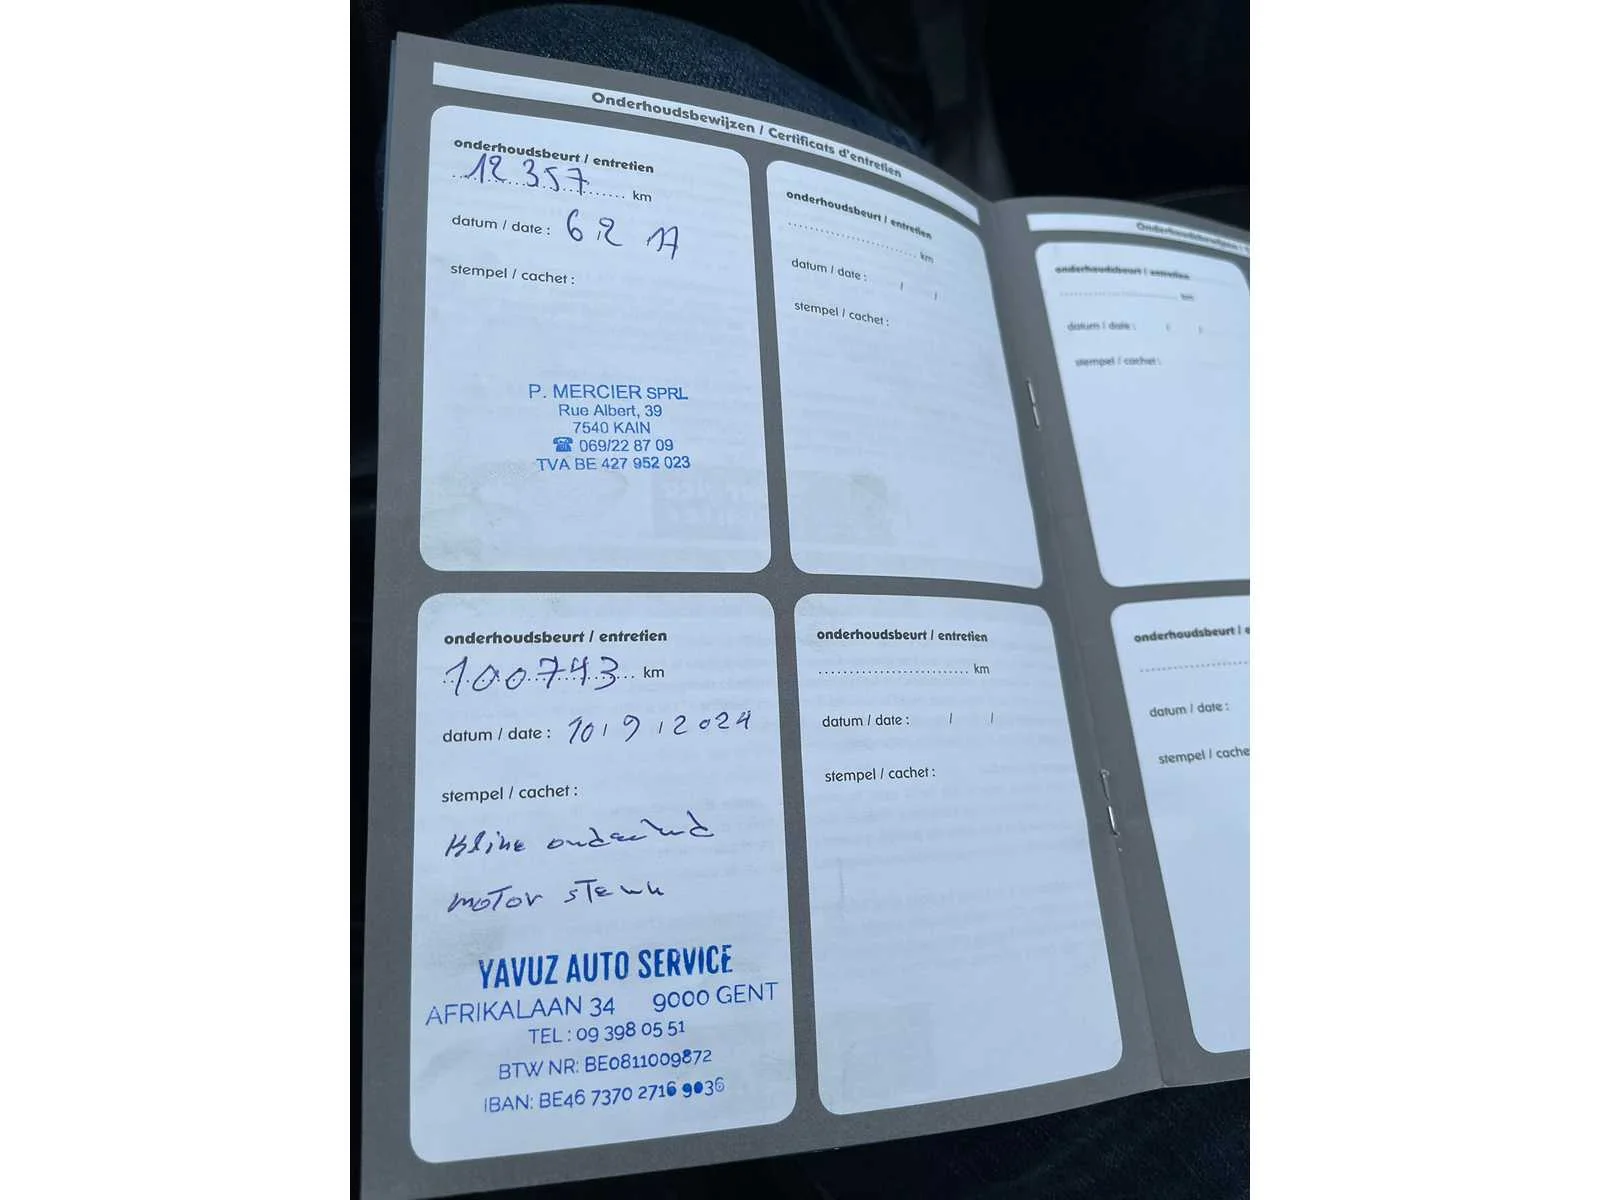 Onderhoudsbewijzen / Certificats d'entretien
onderhoudsbeurt / entretien
12 357 km
datum / date : 6 2 17
stempel / cachet :
P. MERCIER SPRL
Rue Albert, 39
7540 KAIN
☎ 069/22 87 09
TVA BE 427 952 023
onderhoudsbeurt / entretien
100743 km
datum / date : 10 / 9 / 2024
stempel / cachet :
motor
YAVUZ AUTO SERVICE
AFRIKALAAN 34 9000 GENT
TEL : 09 398 05 51
BTW NR: BE0811009872
IBAN: BE46 7370 2716 9036
onderhoudsbeurt / entretien
km
datum / date : / /
stempel / cachet :
onderhoudsbeurt / entretien
km
datum / date : / /
stempel / cachet :
Onderhoudsbewijzen /
onderhoudsbeurt / entretien
km
datum / date : / /
stempel / cachet :
onderhoudsbeurt / e
datum / date :
stempel / cache